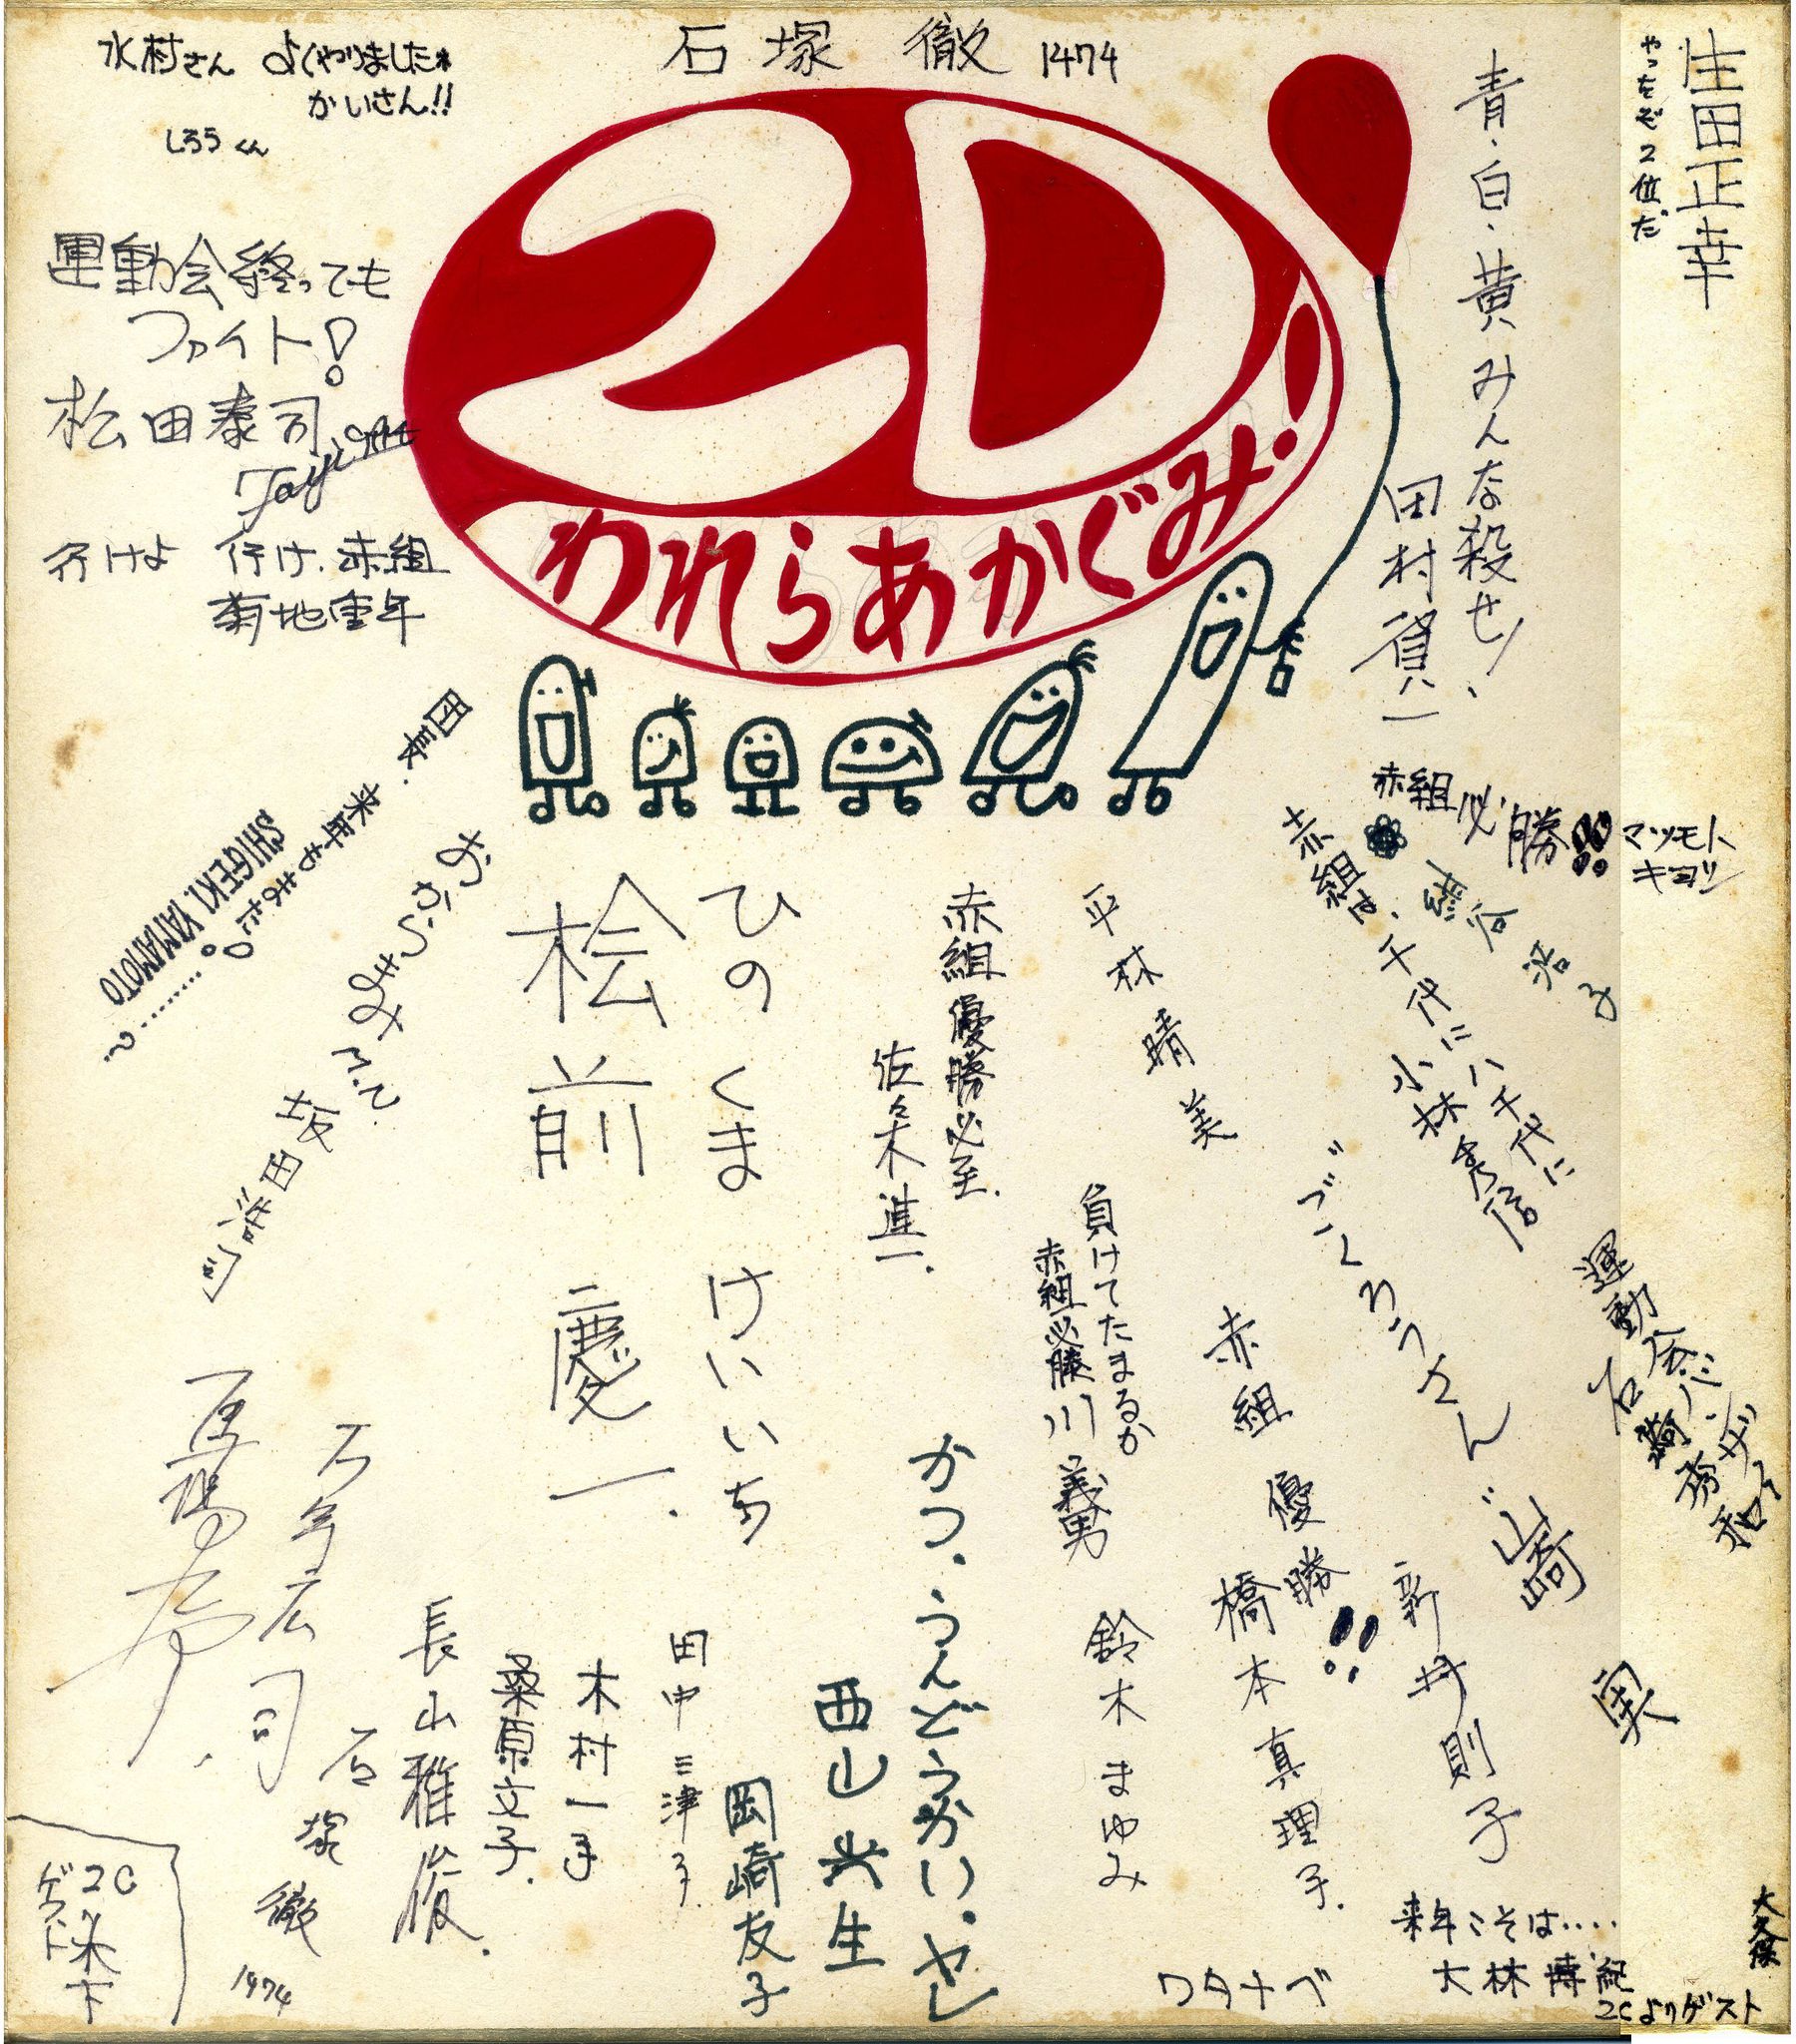 水村さん よくやりましたね
かいさん!!
しろうくん
石塚 徹 1474
2D!
われらあかぐみ!
生田正幸
やったぞ2位だ
青・白・黄みんな殺せ!
田村賃一
運動会終っても
ファイト!
松田泰司
行けよ 行け、赤組
菊地重年
団長.
来年もまだ!
SHIGEKI YAMAMOTO
.........?
坂田浩
赤組必勝!!
マツモト
キヨシ
浩子
赤組は、千代に八千代に
小林秀信
平林晴美
赤組優勝必至.
佐々木進一.
ひのくま けいいち
桧前 慶一.
負けてたまるか
赤組必勝 川 義男
"ごくろうさん"
山崎
実
運動会バンザイ
石崎秀和
赤組 優勝!!
橋本真理子.
新井則子
鈴木まゆみ
かつ.うんどうかい.ヤレ
西山 生
岡崎友子
田中三津子.
木村一手
桑原文子.
長山雅俊.
石年広司
石塚 徹
1974
2C
ゲスト
木下
ワタナベ
来年こそは....
大林博紀
2Cよりゲスト
大久保